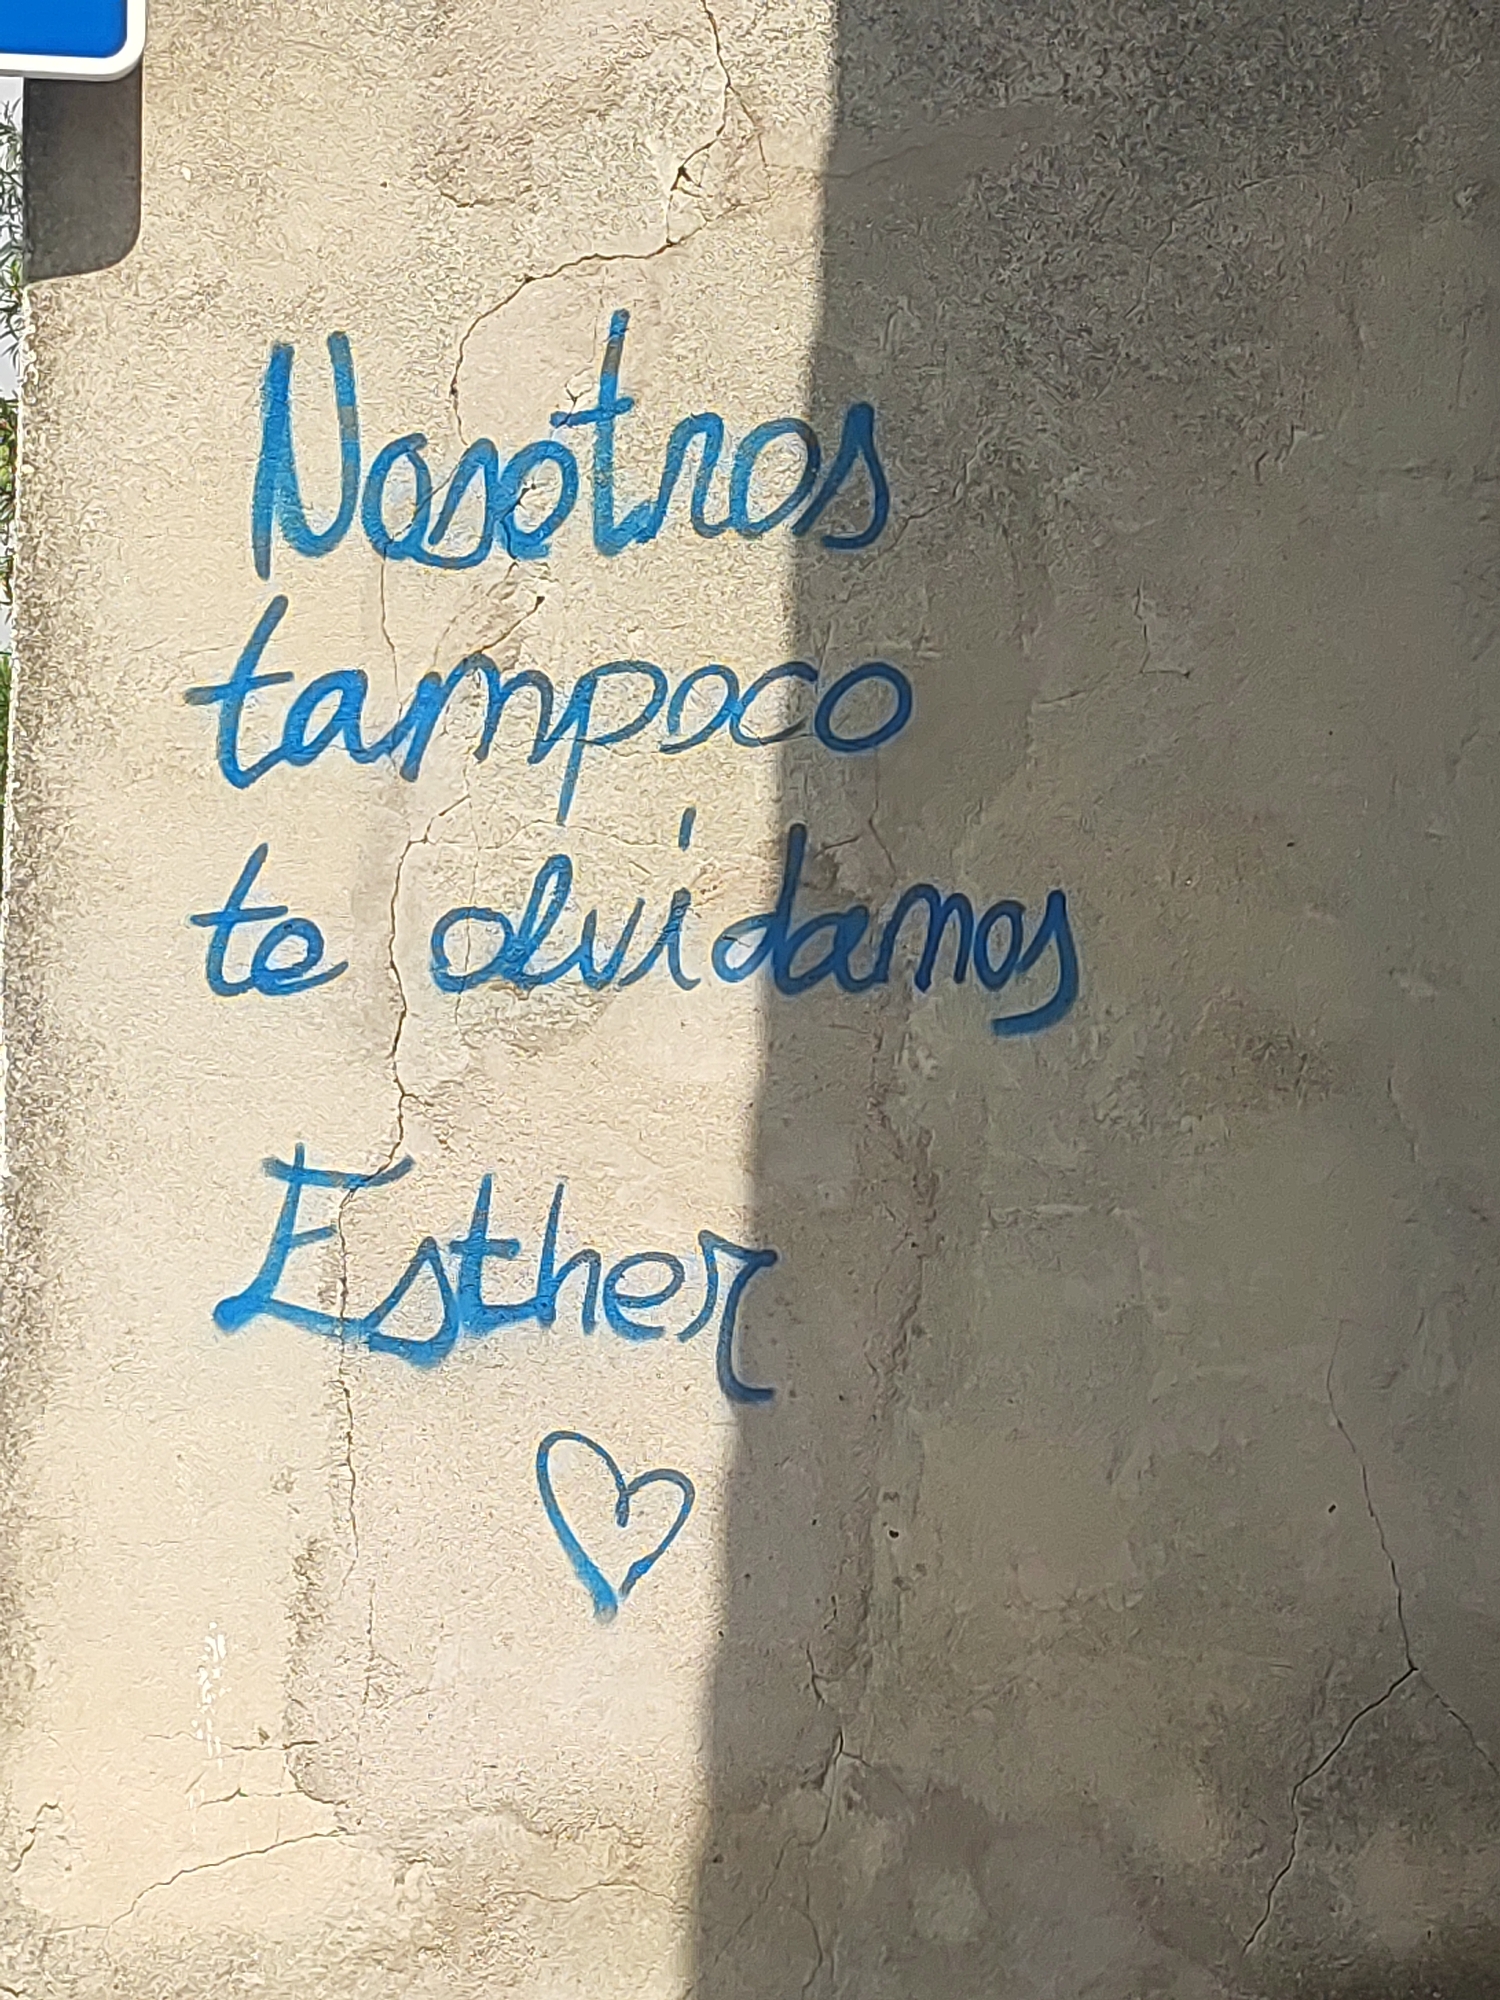 Nosotros
tampoco
te olvidamos
Esther